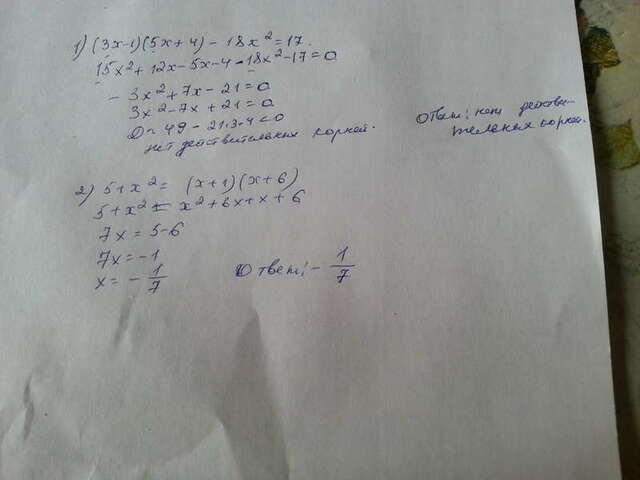 1) (3x-1)(5x+4) - 18x² = 17.
15x² + 12x - 5x - 4 - 18x² - 17 = 0
- 3x² + 7x - 21 = 0
3x² - 7x + 21 = 0
D = 49 - 21·3·4 < 0
нет действительных корней.
Ответ: нет действи-
тельных корней.
2) 5 + x² = (x+1)(x+6)
5 + x² = x² + 6x + x + 6
7x = 5-6
7x = -1
x = - 1/7
Ответ: - 1/7